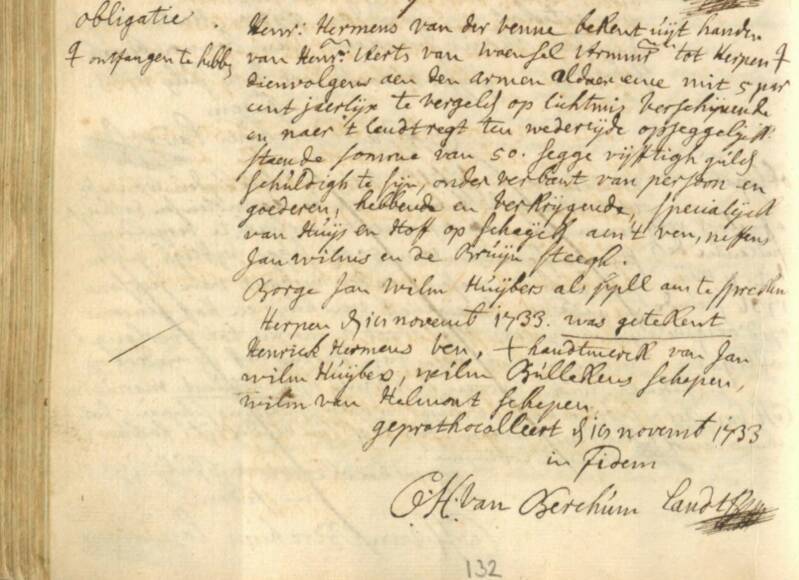 obligatie .
Ɨ ontfangen te hebb
Henr: Hermens van der venne bekent uijt handen
van Henr: Verts van woensel Armmr tot Herpen Ɨ
dienvolgens aen den armen aldaer eene mit 5 par
cent jaerlijx te vergeld op lichtmis verschijnende
en naer 't landtregt ten wedersijde opseggelijck
staende somme van 50. segge vijfftigh guld
schuldigh te sijn, onder verbant van persoon en
goederen, hebbende en verkrijgende, specialijck
van Huijs en Hoff op schayck aen 't ven, neffens
Jan wilms en de Bruijn steegh.
Borge Jan Wilm Huijbers als ppll aen te spreken
Herpen d 10 novemb 1733. was getekent
Henrick Hermens ven, + handtmerck van Jan
wilm Huijbers, wilm Bullekens schepen,
wilm van Helmont schepen
geprothocolleert d 10 novemb 1733
in fidem
C.H. van Berchum Landt
132